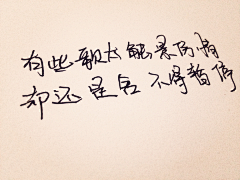 有些歌太能表伤情
却还是舍不得暂停